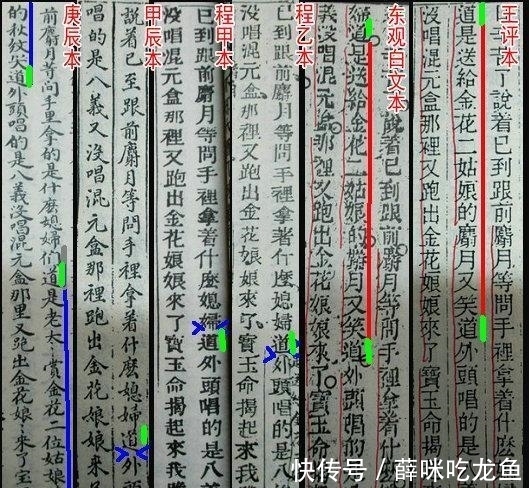 王评本
了說着已到跟前麝月等問手裡拿着什
道是送給金花二姑娘的麝月又笑道外頭唱的是
沒唱混元盒那裡又跑出金花娘娘來了寶玉命揭
东观白文本
前麝月等問手裡拿着什
婦道是送給金花二姑娘的麝月又笑道外頭唱的
義沒唱混元盒那裡又跑出金花娘娘來了寶玉命
程乙本
已到跟前麝月等問手裡拿着什麼媳婦道外頭唱的是八
沒唱混元盒那裡又跑出金花娘娘來了寶玉命揭起來我
程甲本
已到跟前麝月等問手裡拿着什麼媳婦道外頭唱的是八義
沒唱混元盒那裡又跑出金花娘娘來了寶玉命揭起來我
甲辰本
說着已至跟前麝月等問手裡拿着什麼媳婦道外頭
唱的是八義又沒唱混元盒那裡跑出金花娘娘來
庚辰本
前麝月等问手里拿的是什麽媳婦们道是老太〻賞金花二位姑娘
的秋紋笑道外頭唱的是八義沒唱混元盒那里又跑出金花娘〻來了宝
快传号 / 薛咪吃龙鱼